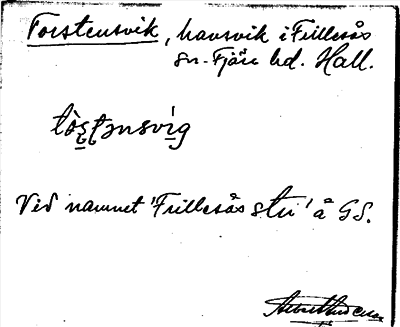 Torstensvik, havsvik i Frillesås
sn. Fjäre hd. Hall.
tòs̱tənsvíg
Vid namnet 'Frillesås stn' å GS.